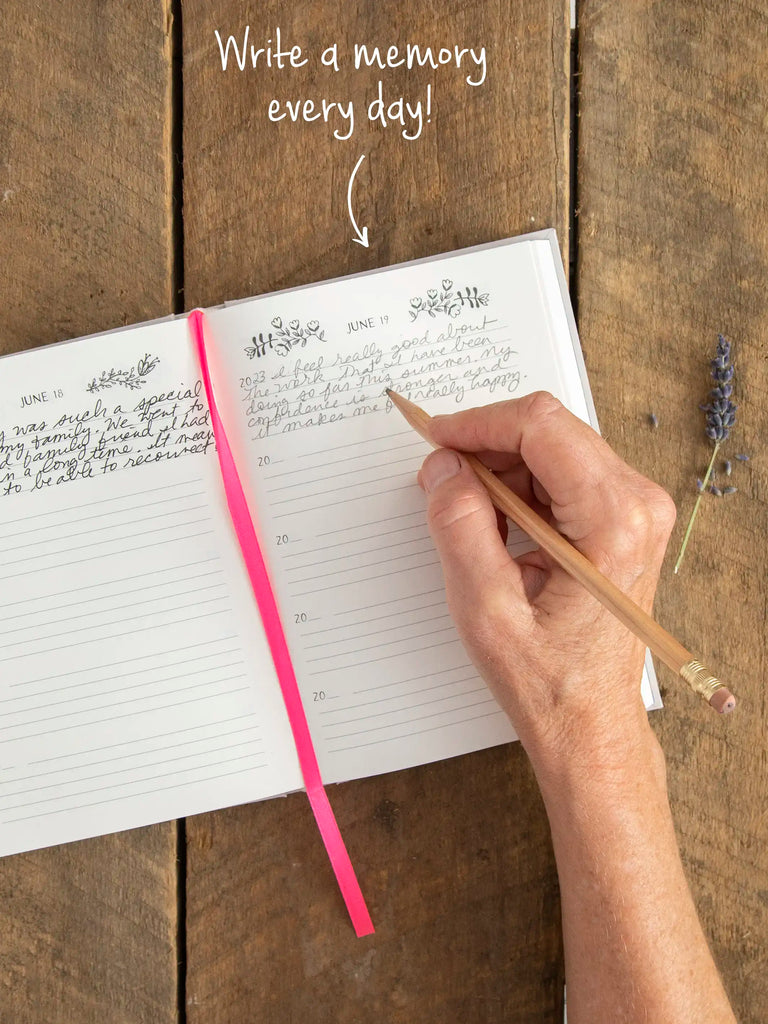 Write a memory
every day!
JUNE 18
y was such a special
my family. We went to
d family friend I had
n a long time. It mean
to be able to reconnect!
JUNE 19
2023 I feel really good about
the work that I have been
doing so far this summer. My
confidence is stronger and
it makes me really happy.
20
20
20
20